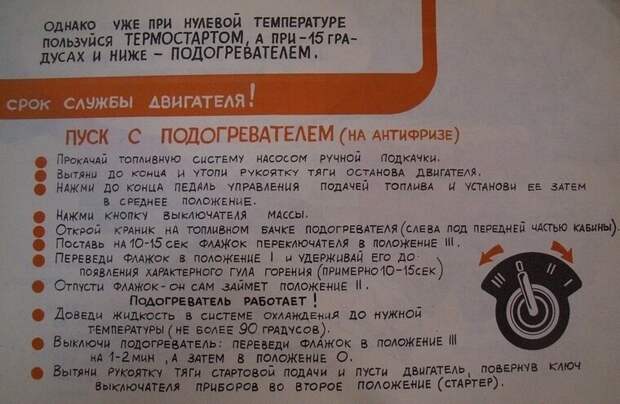 ОДНАКО УЖЕ ПРИ НУЛЕВОЙ ТЕМПЕРАТУРЕ
ПОЛЬЗУЙСЯ ТЕРМОСТАРТОМ, А ПРИ -15 ГРА-
ДУСАХ И НИЖЕ - ПОДОГРЕВАТЕЛЕМ.
СРОК СЛУЖБЫ ДВИГАТЕЛЯ!
ПУСК С ПОДОГРЕВАТЕЛЕМ (НА АНТИФРИЗЕ)
ПРОКАЧАЙ ТОПЛИВНУЮ СИСТЕМУ НАСОСОМ РУЧНОЙ ПОДКАЧКИ.
ВЫТЯНИ ДО КОНЦА И УТОПИ РУКОЯТКУ ТЯГИ ОСТАНОВА ДВИГАТЕЛЯ.
НАЖМИ ДО КОНЦА ПЕДАЛЬ УПРАВЛЕНИЯ ПОДАЧЕЙ ТОПЛИВА И УСТАНОВИ ЕЕ ЗАТЕМ
В СРЕДНЕЕ ПОЛОЖЕНИЕ.
НАЖМИ КНОПКУ ВЫКЛЮЧАТЕЛЯ МАССЫ.
ОТКРОЙ КРАНИК НА ТОПЛИВНОМ БАЧКЕ ПОДОГРЕВАТЕЛЯ (СЛЕВА ПОД ПЕРЕДНЕЙ ЧАСТЬЮ КАБИНЫ).
ПОСТАВЬ НА 10-15 СЕК ФЛАЖОК ПЕРЕКЛЮЧАТЕЛЯ В ПОЛОЖЕНИЕ III.
ПЕРЕВЕДИ ФЛАЖОК В ПОЛОЖЕНИЕ I И УДЕРЖИВАЙ ЕГО ДО
ПОЯВЛЕНИЯ ХАРАКТЕРНОГО ГУЛА ГОРЕНИЯ (ПРИМЕРНО 10-15СЕК)
ОТПУСТИ ФЛАЖОК - ОН САМ ЗАЙМЕТ ПОЛОЖЕНИЕ II.
ПОДОГРЕВАТЕЛЬ РАБОТАЕТ!
ДОВЕДИ ЖИДКОСТЬ В СИСТЕМЕ ОХЛАЖДЕНИЯ ДО НУЖНОЙ
ТЕМПЕРАТУРЫ (НЕ БОЛЕЕ 90 ГРАДУСОВ).
ВЫКЛЮЧИ ПОДОГРЕВАТЕЛЬ: ПЕРЕВЕДИ ФЛАЖОК В ПОЛОЖЕНИЕ III
НА 1-2 МИН, А ЗАТЕМ В ПОЛОЖЕНИЕ О.
ВЫТЯНИ РУКОЯТКУ ТЯГИ СТАРТОВОЙ ПОДАЧИ И ПУСТИ ДВИГАТЕЛЬ, ПОВЕРНУВ КЛЮЧ
ВЫКЛЮЧАТЕЛЯ ПРИБОРОВ ВО ВТОРОЕ ПОЛОЖЕНИЕ (СТАРТЕР).